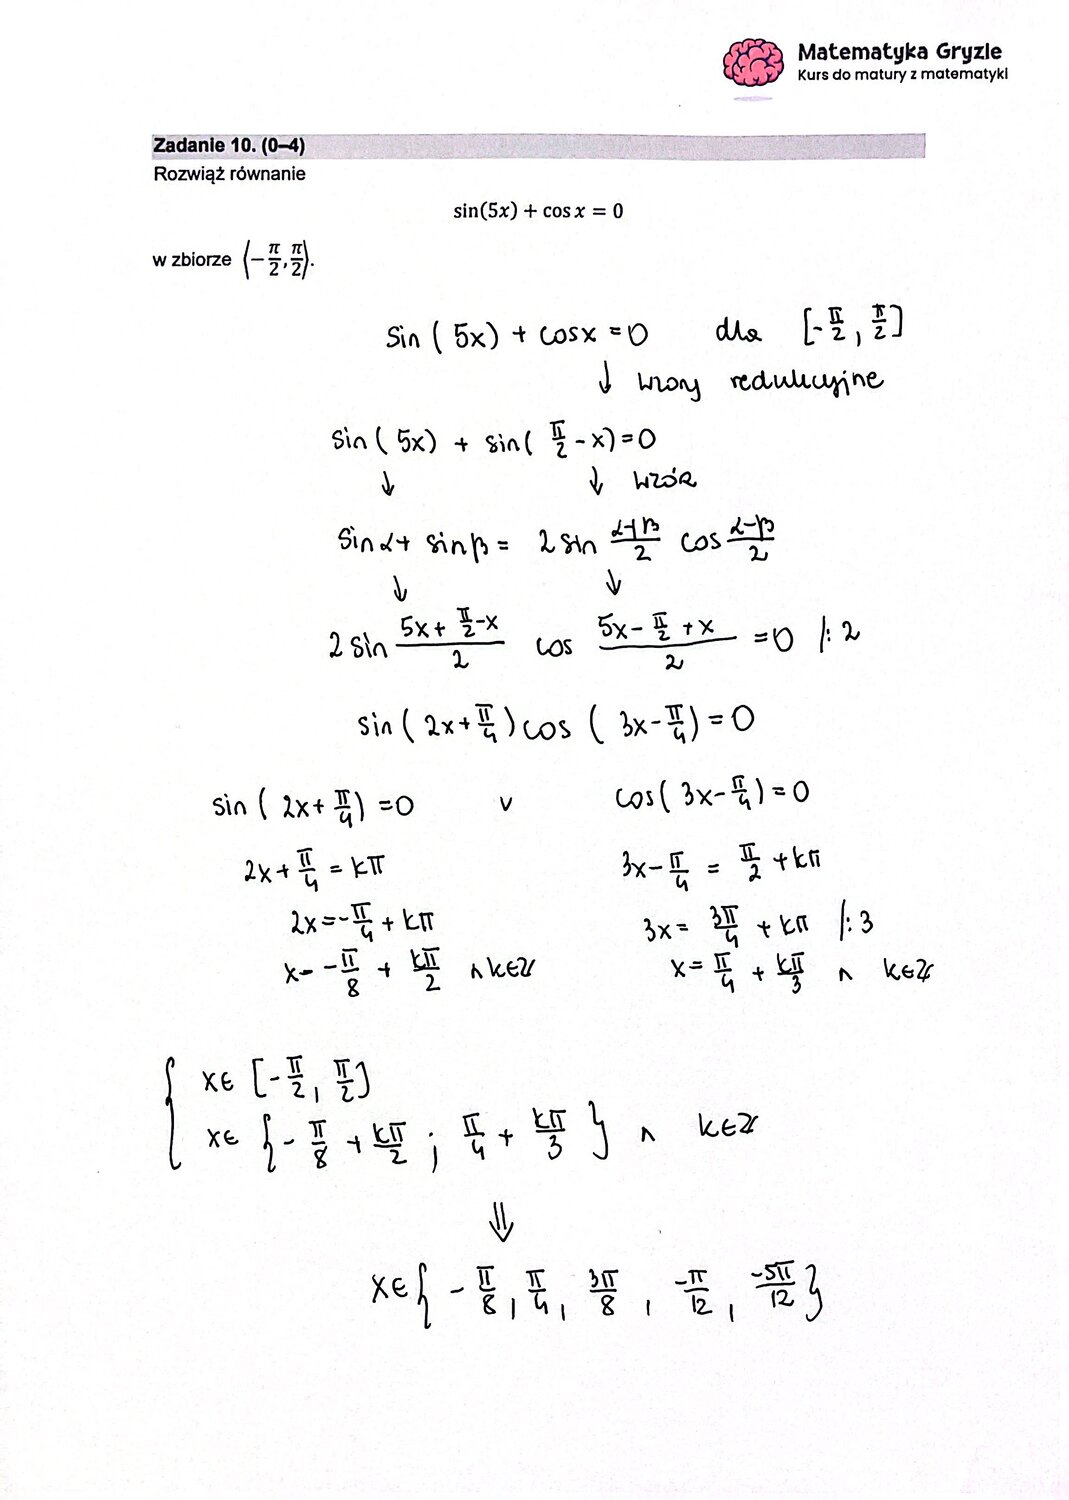 Matematyka Gryzie
Kurs do matury z matematyki
Zadanie 10. (0–4)
Rozwiąż równanie
sin(5x) + cos x = 0
w zbiorze ⟨−π/2, π/2⟩.
sin(5x) + cosx = 0 dla [-π/2, π/2]
↓ wzory redukcyjne
sin(5x) + sin(π/2 - x) = 0
↓ ↓ wzór
sinα + sinβ = 2 sin (α+β)/2 cos (α-β)/2
↓ ↓
2 sin (5x + π/2 - x)/2 cos (5x - π/2 + x)/2 = 0 /: 2
sin(2x + π/4) cos(3x - π/4) = 0
sin(2x + π/4) = 0 v cos(3x - π/4) = 0
2x + π/4 = kπ 3x - π/4 = π/2 + kπ
2x = -π/4 + kπ 3x = 3π/4 + kπ /: 3
x = -π/8 + kπ/2 ∧ k∈ℤ x = π/4 + kπ/3 ∧ k∈ℤ
{ x∈ [-π/2, π/2]
x∈ {-π/8 + kπ/2 ; π/4 + kπ/3} ∧ k∈ℤ
⇓
x∈ {-π/8, π/4, 3π/8, -π/12, -5π/12}